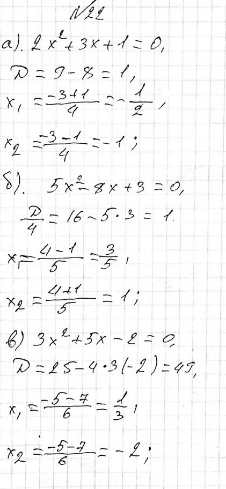 №22
а). 2x²+3x+1=0,
D=9-8=1,
x₁=\frac{-3+1}{4}=-\frac{1}{2},
x₂=\frac{-3-1}{4}=-1;
б). 5x²-8x+3=0,
\frac{D}{4}=16-5·3=1.
x₁=\frac{4-1}{5}=\frac{3}{5},
x₂=\frac{4+1}{5}=1;
в) 3x²+5x-2=0,
D=25-4·3(-2)=49,
x₁=\frac{-5-7}{6}=\frac{1}{3},
x₂=\frac{-5-7}{6}=-2;